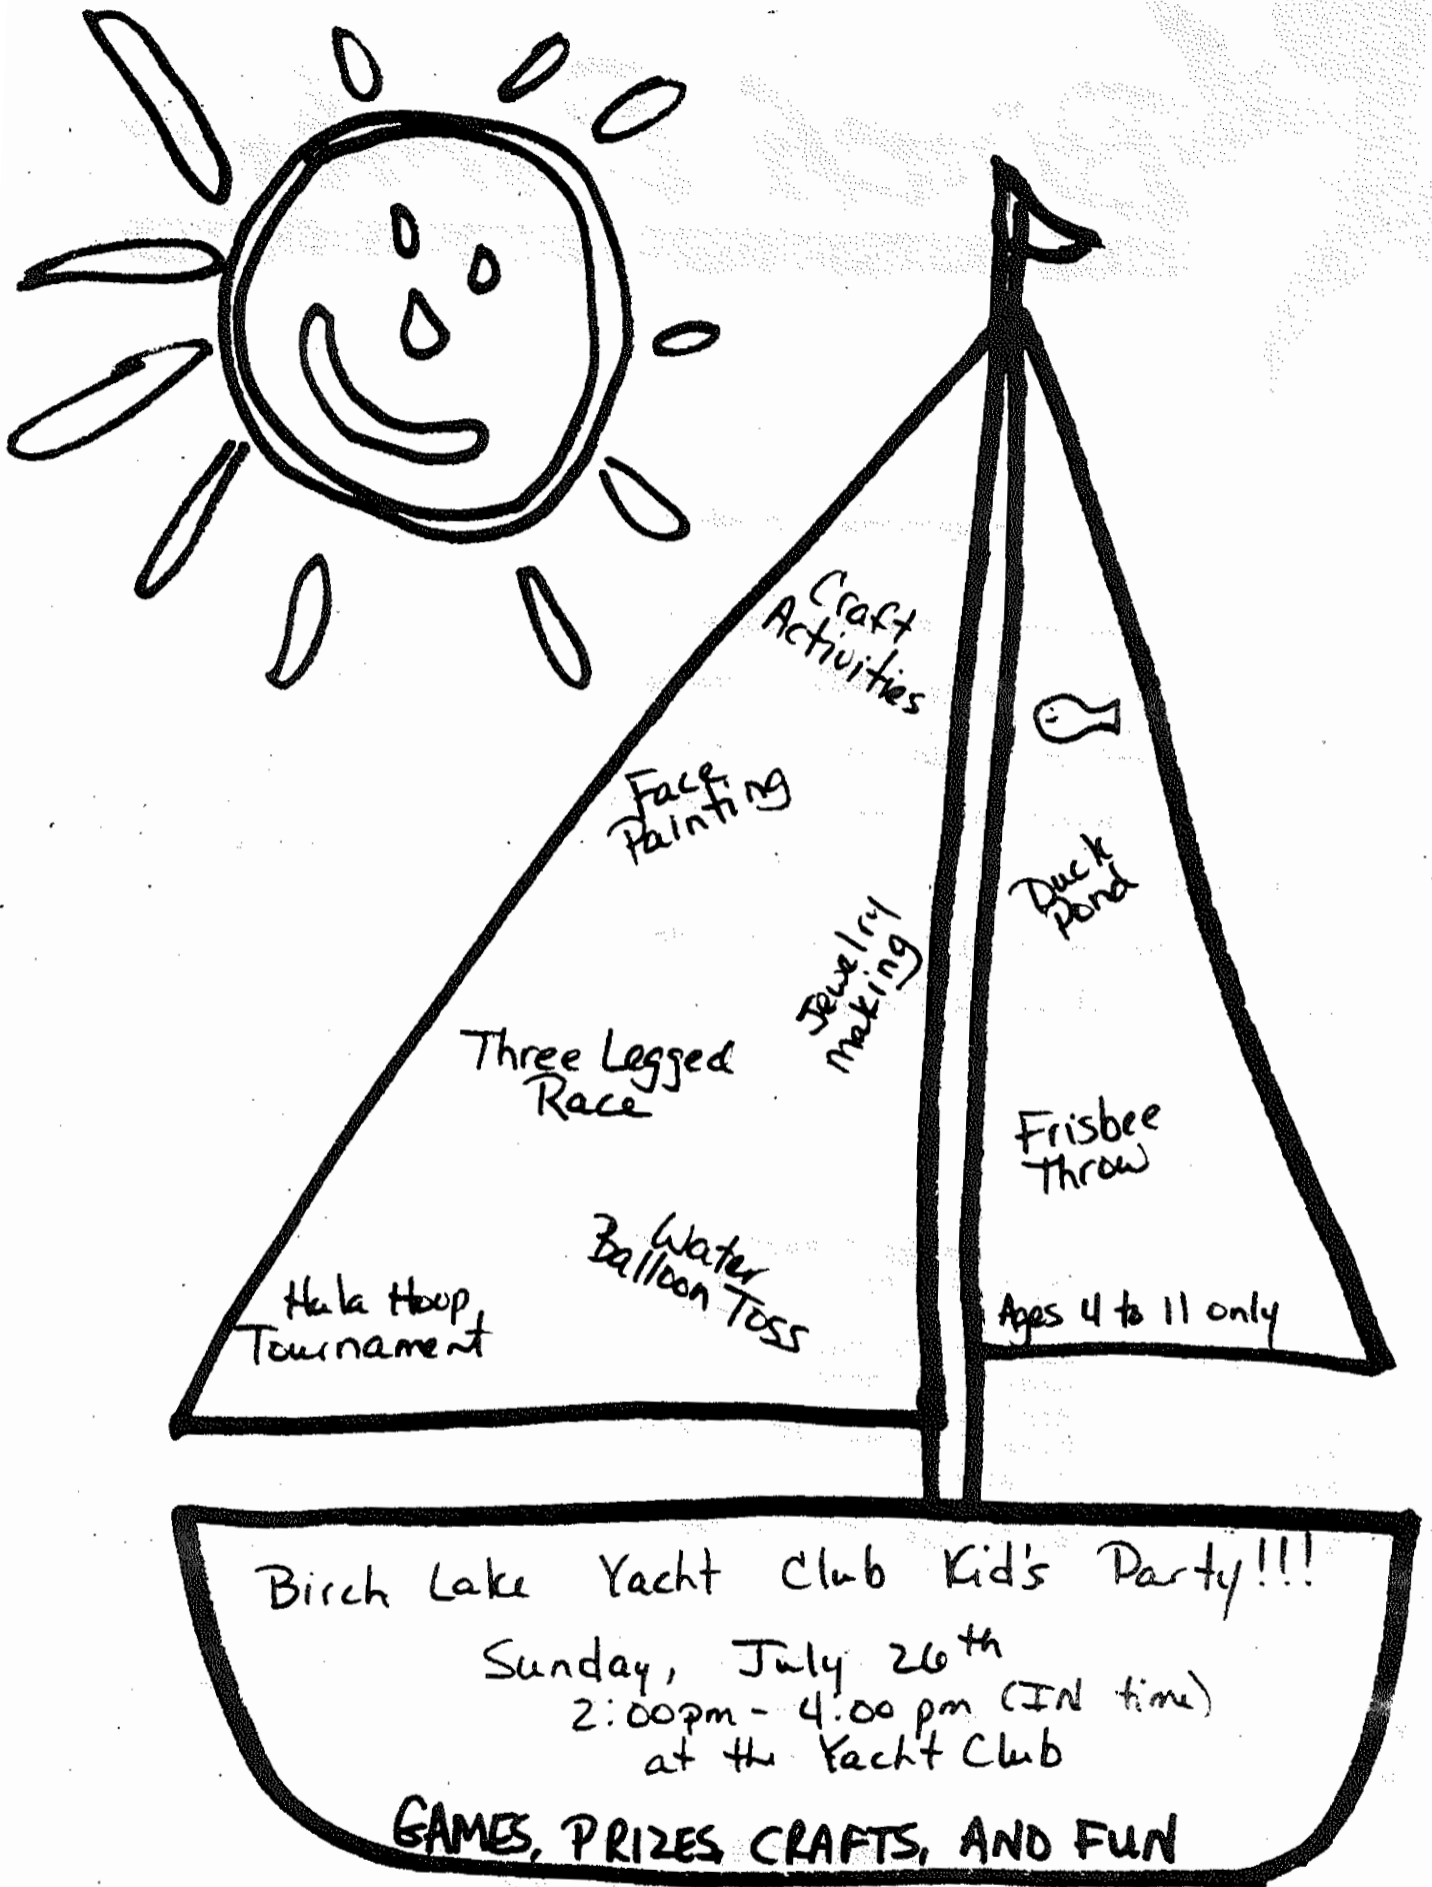 Craft
Activities
Face
Painting
Duck
Pond
Jewelry
Making
Three Legged
Race
Frisbee
Throw
Water
Balloon Toss
Hula Hoop
Tournament
Ages 4 to 11 only
Birch Lake Yacht Club Kid's Party!!!
Sunday, July 26th
2:00pm - 4:00 pm (IN time)
at the Yacht Club
GAMES, PRIZES, CRAFTS, AND FUN